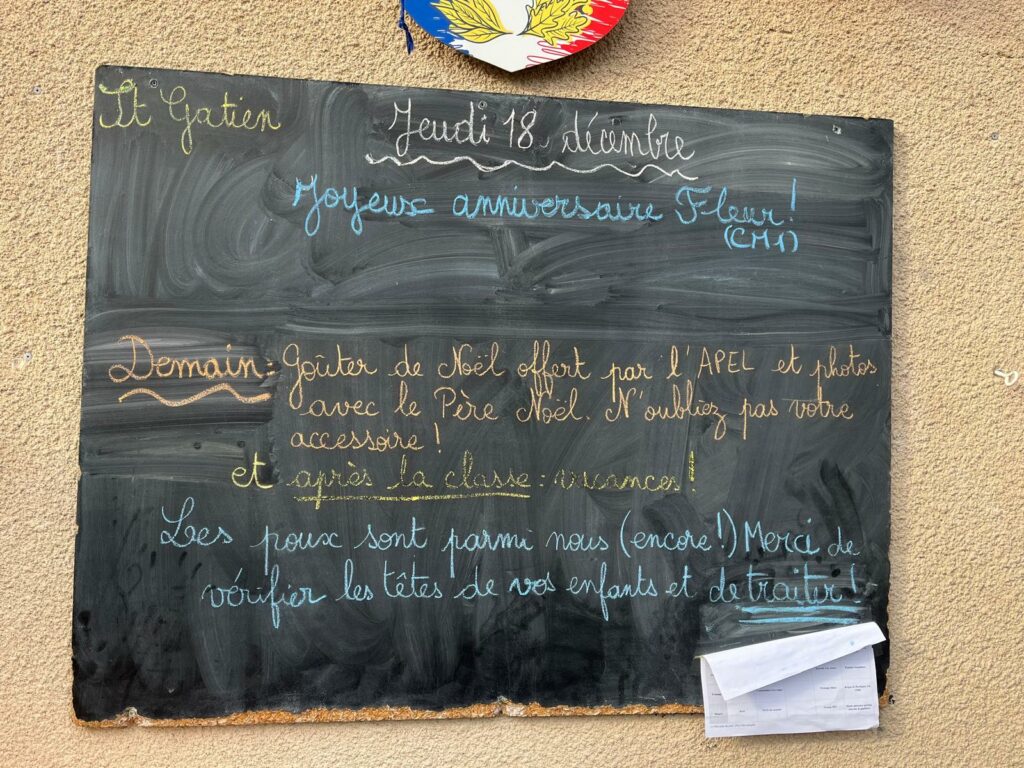 St Gatien
Jeudi 18 décembre
Joyeux anniversaire Fleur!
(CM1)
Demain: Goûter de Noël offert par l'APEL et photos
avec le Père Noël. N'oubliez pas votre
accessoire!
et après la classe: vacances!
Les poux sont parmi nous (encore!) Merci de
vérifier les têtes de vos enfants et de traiter!